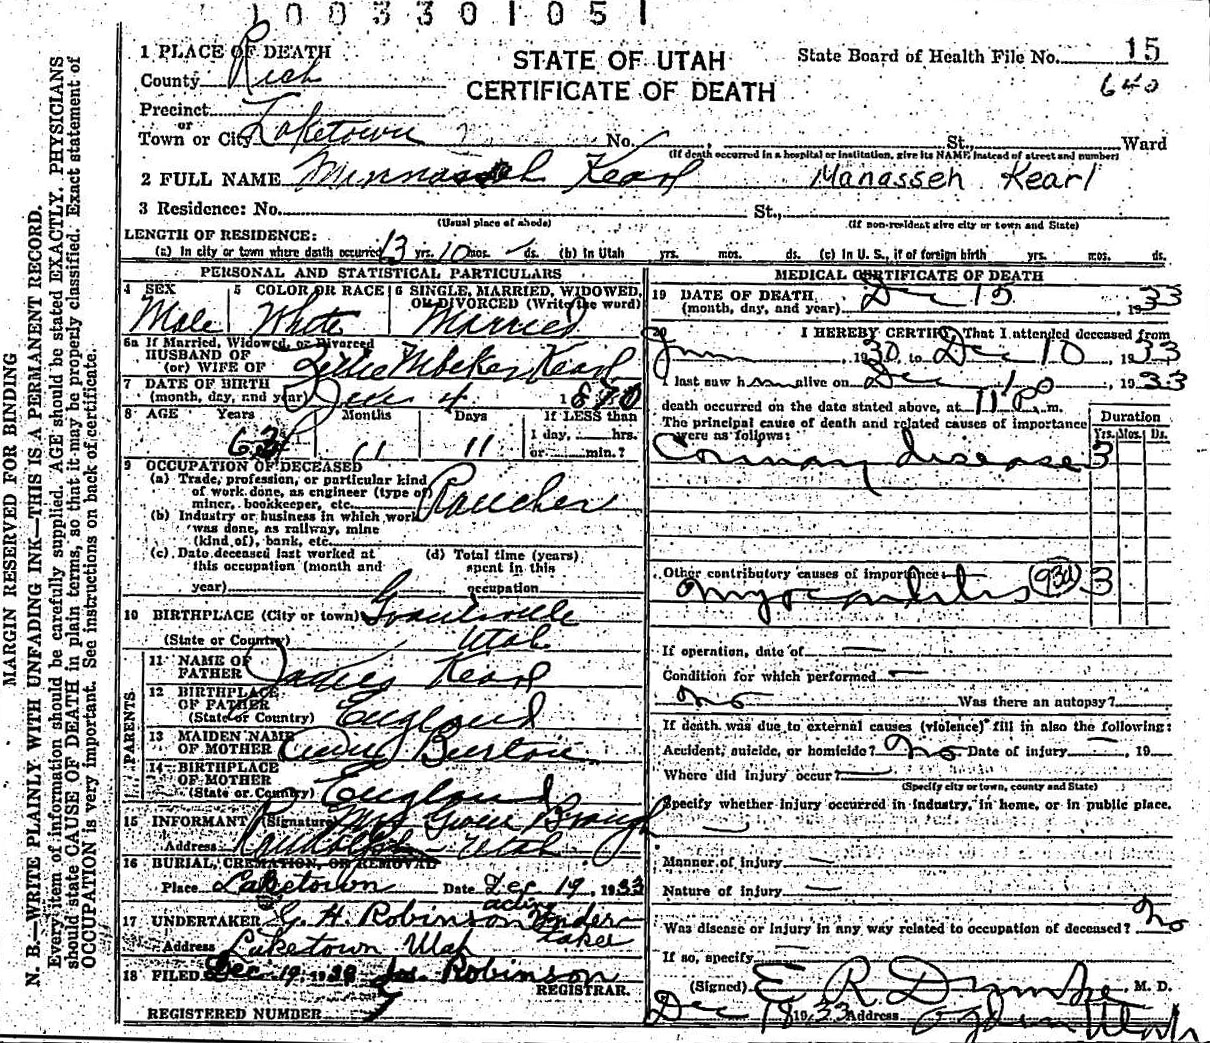 1003301051
1 PLACE OF DEATH
STATE OF UTAH
CERTIFICATE OF DEATH
State Board of Health File No. 15
640
County Rich
Precinct
or
Town or City Laketown No. St., Ward
(If death occurred in a hospital or institution, give its NAME instead of street and number)
2 FULL NAME Minnasseh Kearl Manasseh Kearl
3 Residence: No. St.,
(Usual place of abode) (If non-resident give city or town and State)
LENGTH OF RESIDENCE:
(a) In city or town where death occurred 13 yrs. 10 mos. ds. (b) In Utah yrs. mos. ds. (c) In U. S., if of foreign birth yrs. mos. ds.
PERSONAL AND STATISTICAL PARTICULARS
4 SEX 5 COLOR OR RACE 6 SINGLE, MARRIED, WIDOWED,
OR DIVORCED (Write the word)
Male White Married
6a If Married, Widowed, or Divorced
HUSBAND OF
(or) WIFE OF Kearl
7 DATE OF BIRTH
(month, day, and year) 4 1870
8 AGE Years Months Days If LESS than
1 day, hrs.
or min.?
63 11 11
9 OCCUPATION OF DECEASED
(a) Trade, profession, or particular kind
of work done, as engineer (type of
miner, bookkeeper, etc. Rancher
(b) Industry or business in which work
was done, as railway, mine
(kind of), bank, etc.
(c) Date deceased last worked at
this occupation (month and
year)
(d) Total time (years)
spent in this
occupation
10 BIRTHPLACE (City or town) Grantsville
(State or Country) Utah
PARENTS
11 NAME OF
FATHER James Kearl
12 BIRTHPLACE
OF FATHER
(State or Country) England
13 MAIDEN NAME
OF MOTHER Ann Burton
14 BIRTHPLACE
OF MOTHER
(State or Country) England
15 INFORMANT (Signature) Mrs Brough
Address Randolph Utah
16 BURIAL, CREMATION, OR REMOVAL
Place Laketown Date Dec 19, 1933
17 UNDERTAKER G. H. Robinson acting Undertaker
Address Laketown Utah
18 FILED Dec. 19, 19 Jos. Robinson
REGISTRAR.
REGISTERED NUMBER 7
MEDICAL CERTIFICATE OF DEATH
19 DATE OF DEATH
(month, day, and year) Dec 15, 1933
20 I HEREBY CERTIFY, That I attended deceased from
, 1930, to Dec 10, 1933
I last saw him alive on Dec 10, 1933
death occurred on the date stated above, at 11 P m.
The principal cause of death and related causes of importance
were as follows:
Duration
Yrs. Mos. Ds.
Coronary disease 3
Other contributory causes of importance:
Myocarditis 93d 3
If operation, date of
Condition for which performed
No Was there an autopsy?
If death was due to external causes (violence) fill in also the following:
Accident, suicide, or homicide? No Date of injury , 19
Where did injury occur?
(Specify city or town, county and State)
Specify whether injury occurred in industry, in home, or in public place.
Manner of injury
Nature of injury
Was disease or injury in any way related to occupation of deceased? No
If so, specify
(Signed) E R Dumke, M. D.
Dec 18 1933 Address Ogden Utah
MARGIN RESERVED FOR BINDING
N. B.—WRITE PLAINLY WITH UNFADING INK—THIS IS A PERMANENT RECORD.
Every item of information should be carefully supplied. AGE should be stated EXACTLY. PHYSICIANS
should state CAUSE OF DEATH in plain terms, so that it may be properly classified. Exact statement of
OCCUPATION is very important. See instructions on back of certificate.